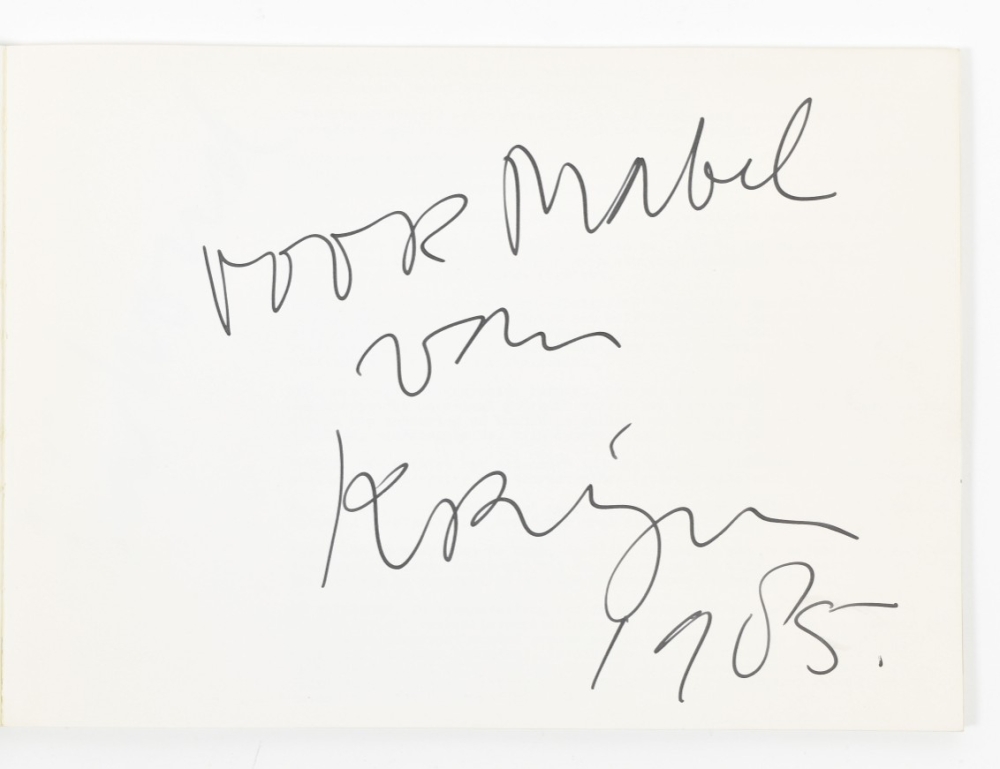 voor Mabel
van
Krijn
1985.